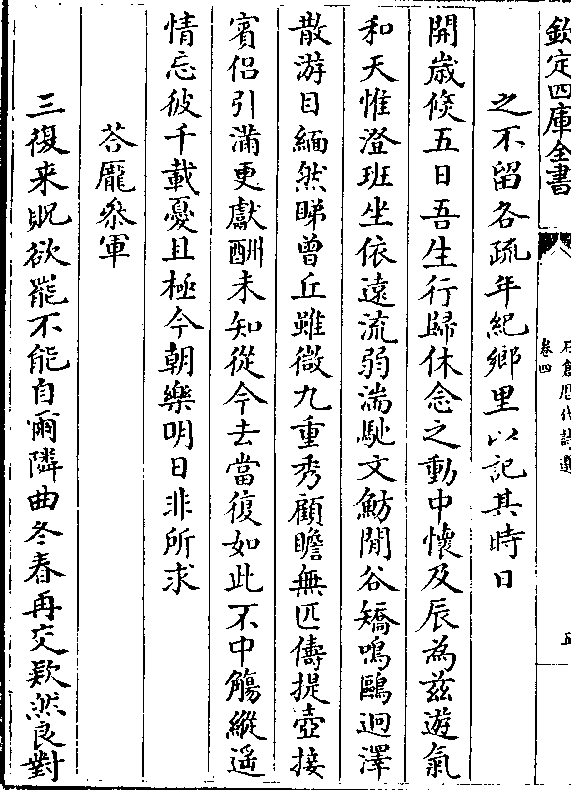 欽定四庫全書
石倉歴代詩選
卷四
五
之不留各疏年紀鄉里以記其時日
開歲倐五日吾生行歸休念之動中懷及辰為兹遊氣
和天惟澄班坐依遠流弱湍馳文魴閒谷矯鳴鷗迥澤
散游目緬然睇曾丘雖微九重秀顧瞻無匹儔提壺接
賓侣引滿更獻酬未知從今去當復如此不中觴縱遥
情忘彼千載憂且極今朝樂明日非所求
荅龎叅軍
三復来貺欲罷不能自爾隣曲冬春再交欵然良對